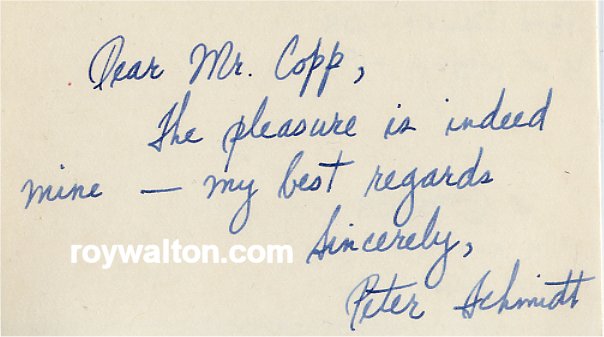 Dear Mr. Copp,
The pleasure is indeed
mine — my best regards
roywalton.com
Sincerely,
Peter Schmidt